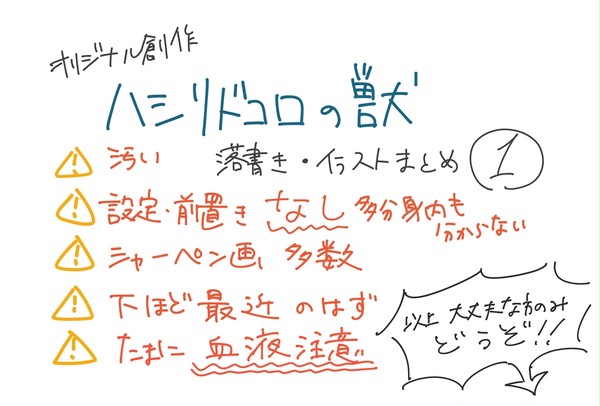 オリジナル創作
ハシリドコロの獣
汚い
落書き・イラストまとめ 1
設定・前置き なし 多分身内も
分からない
シャーペン画 多数
下ほど最近 のはず
たまに 血液注意
以上 大丈夫な方のみ
どうぞ!!